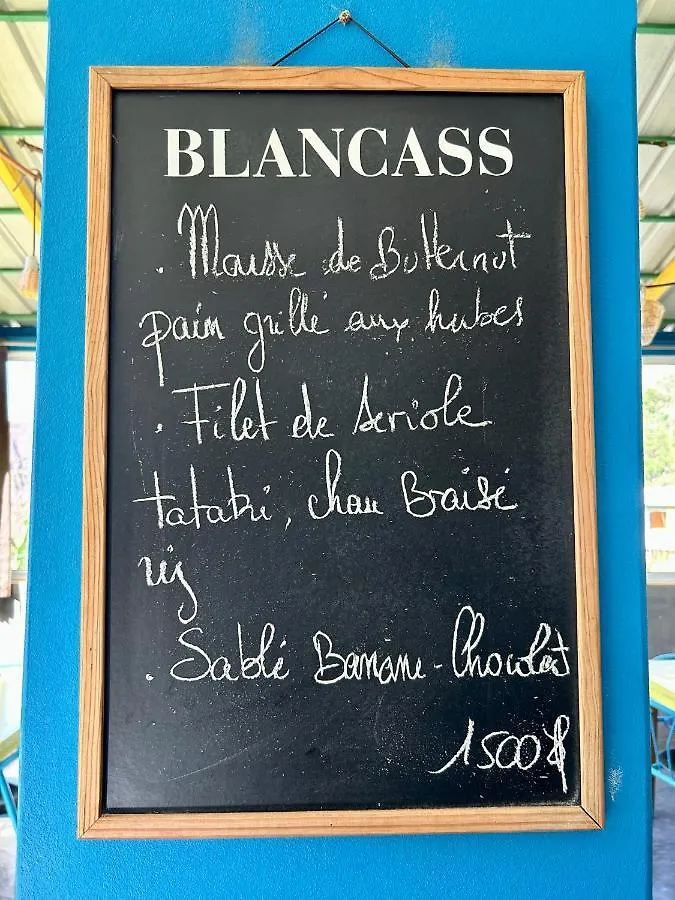 BLANCASS
. Mousse de Butternut
pain grillé aux herbes
. Filet de Seriole
tataki, chou Braisé
riz
. Sablé Banane-Chocolat
1500